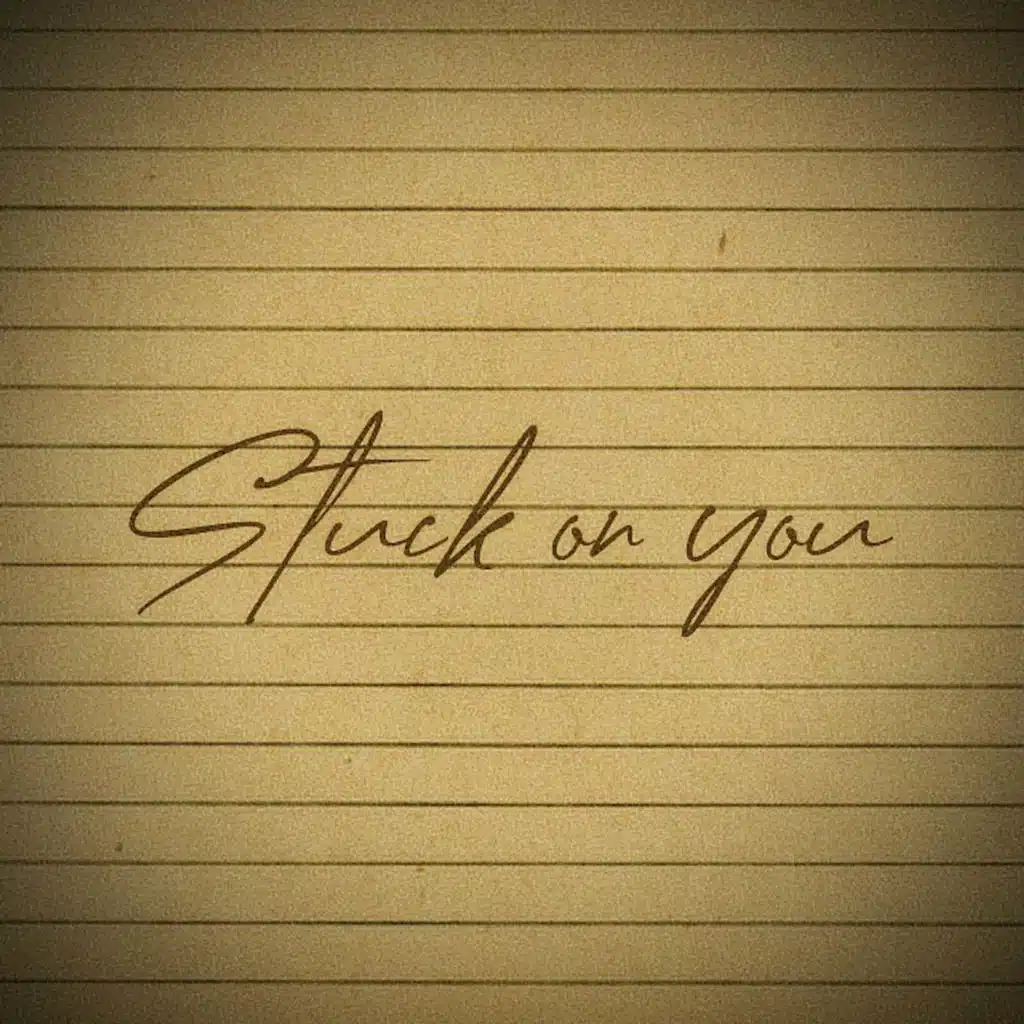 Stuck on you